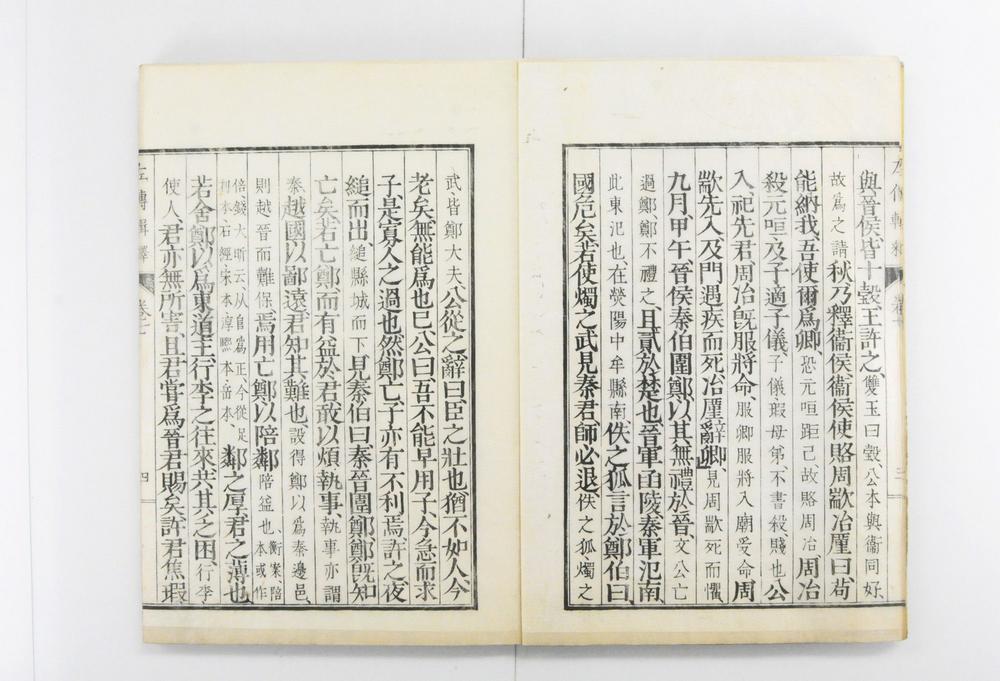 與晉侯皆十瑴王許之雙玉曰瑴公本與衞同好
故爲之請秋乃釋衞侯衞侯使賂周歂冶廑曰苟
能納我吾使爾爲卿恐元咺距己故賂周冶周冶
殺元咺及子適子儀子儀瑕母弟不書殺賤也公
入祀先君周冶旣服將命服卿服將入廟受命周
歂先入及門遇疾而死冶廑辭卿見周歂死而懼
九月甲午晉侯秦伯圍鄭以其無禮於晉文公亡
過鄭鄭不禮之且貳於楚也晉軍函陵秦軍氾南
此東氾也在熒陽中牟縣南佚之狐言於鄭伯曰
國危矣若使燭之武見秦君師必退佚之狐燭之
左傳輯釋 卷七 四
武皆鄭大夫公從之辭曰臣之壯也猶不如人今
老矣無能爲也已公曰吾不能早用子今急而求
子是寡人之過也然鄭亡子亦有不利焉許之夜
縋而出縋縣城而下見秦伯曰秦晉圍鄭鄭旣知
亡矣若亡鄭而有益於君敢以煩執事執事亦謂
秦越國以鄙遠君知其難也設得鄭以爲秦邊邑
則越晉而難保焉用亡鄭以陪鄰陪益也衡案陪本或作
倍錢大昕云从𨸏爲正今從足利本石經宋本淳熙本岳本鄰之厚君之薄也
若舍鄭以爲東道主行李之往來共其乏困行李
使人君亦無所害且君嘗爲晉君賜矣許君焦瑕